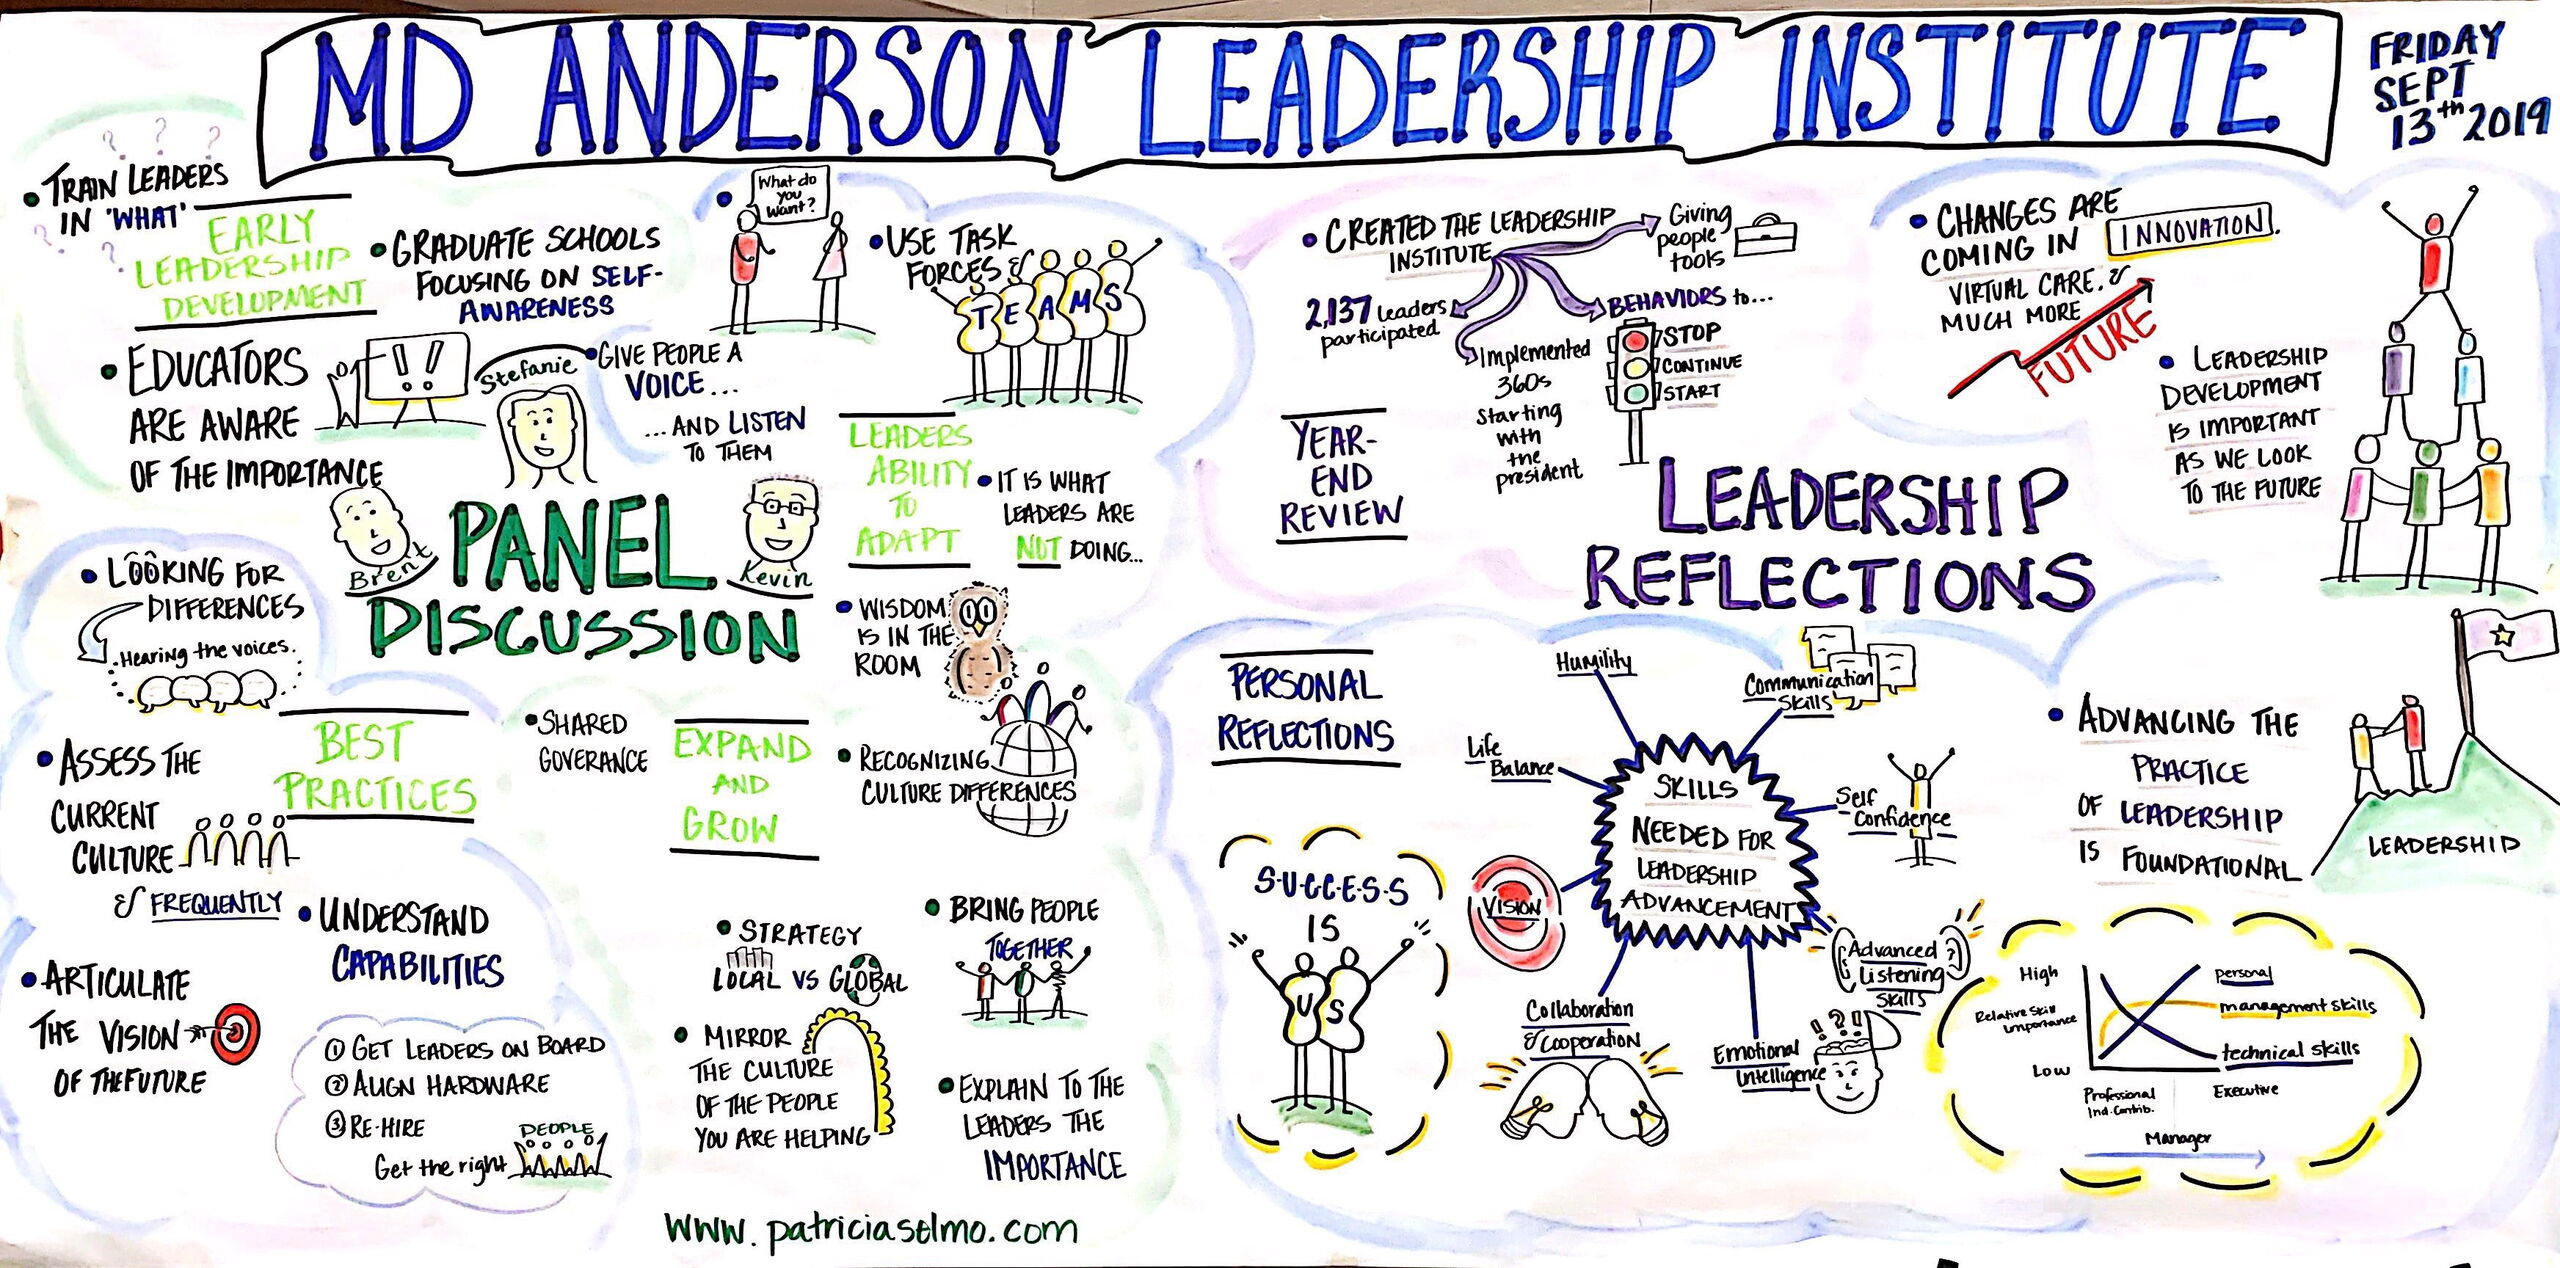 MD ANDERSON LEADERSHIP INSTITUTE
FRIDAY
SEPT
13th 2019
? ? ?
• TRAIN LEADERS
IN 'WHAT'
? ? ?
EARLY
LEADERSHIP
DEVELOPMENT
• GRADUATE SCHOOLS
FOCUSING ON SELF-
AWARENESS
• EDUCATORS
ARE AWARE
OF THE IMPORTANCE
!!
Stefanie
Brent
Kevin
PANEL
DISCUSSION
•
What do
you
want?
• GIVE PEOPLE A
VOICE...
...AND LISTEN
TO THEM
• USE TASK
FORCES &
TEAMS
LEADERS
ABILITY
TO
ADAPT
• IT IS WHAT
LEADERS ARE
NOT DOING...
• WISDOM
IS IN THE
ROOM
• LOOKING FOR
DIFFERENCES
Hearing the voices.
BEST
PRACTICES
• ASSESS THE
CURRENT
CULTURE
& FREQUENTLY
• UNDERSTAND
CAPABILITIES
• ARTICULATE
THE VISION
OF THE FUTURE
① GET LEADERS ON BOARD
② ALIGN HARDWARE
③ RE-HIRE
Get the right
PEOPLE
• SHARED
GOVERANCE
EXPAND
AND
GROW
• RECOGNIZING
CULTURE DIFFERENCES
• STRATEGY
LOCAL VS GLOBAL
• BRING PEOPLE
TOGETHER
• MIRROR
THE CULTURE
OF THE PEOPLE
YOU ARE HELPING
• EXPLAIN TO THE
LEADERS THE
IMPORTANCE
www.patriciaselmo.com
• CREATED THE LEADERSHIP
INSTITUTE
Giving
people
tools
2,137 leaders
participated
Implemented
360s
starting
with
the
president
BEHAVIORS to...
STOP
CONTINUE
START
YEAR-
END
REVIEW
LEADERSHIP
REFLECTIONS
• CHANGES ARE
COMING IN INNOVATION.
VIRTUAL CARE, &
MUCH MORE
FUTURE
• LEADERSHIP
DEVELOPMENT
IS IMPORTANT
AS WE LOOK
TO THE FUTURE
PERSONAL
REFLECTIONS
S-U-C-C-E-S-S
IS
US
SKILLS
NEEDED FOR
LEADERSHIP
ADVANCEMENT
Humility
Communication
Skills
Life
Balance
Self
Confidence
VISION
Advanced
Listening
Skills
Collaboration
& Cooperation
Emotional
Intelligence
!?!?
• ADVANCING THE
PRACTICE
OF LEADERSHIP
IS FOUNDATIONAL
LEADERSHIP
High
Relative Skill
importance
Low
personal
management skills
technical skills
Professional
Ind. Contrib.
Executive
Manager